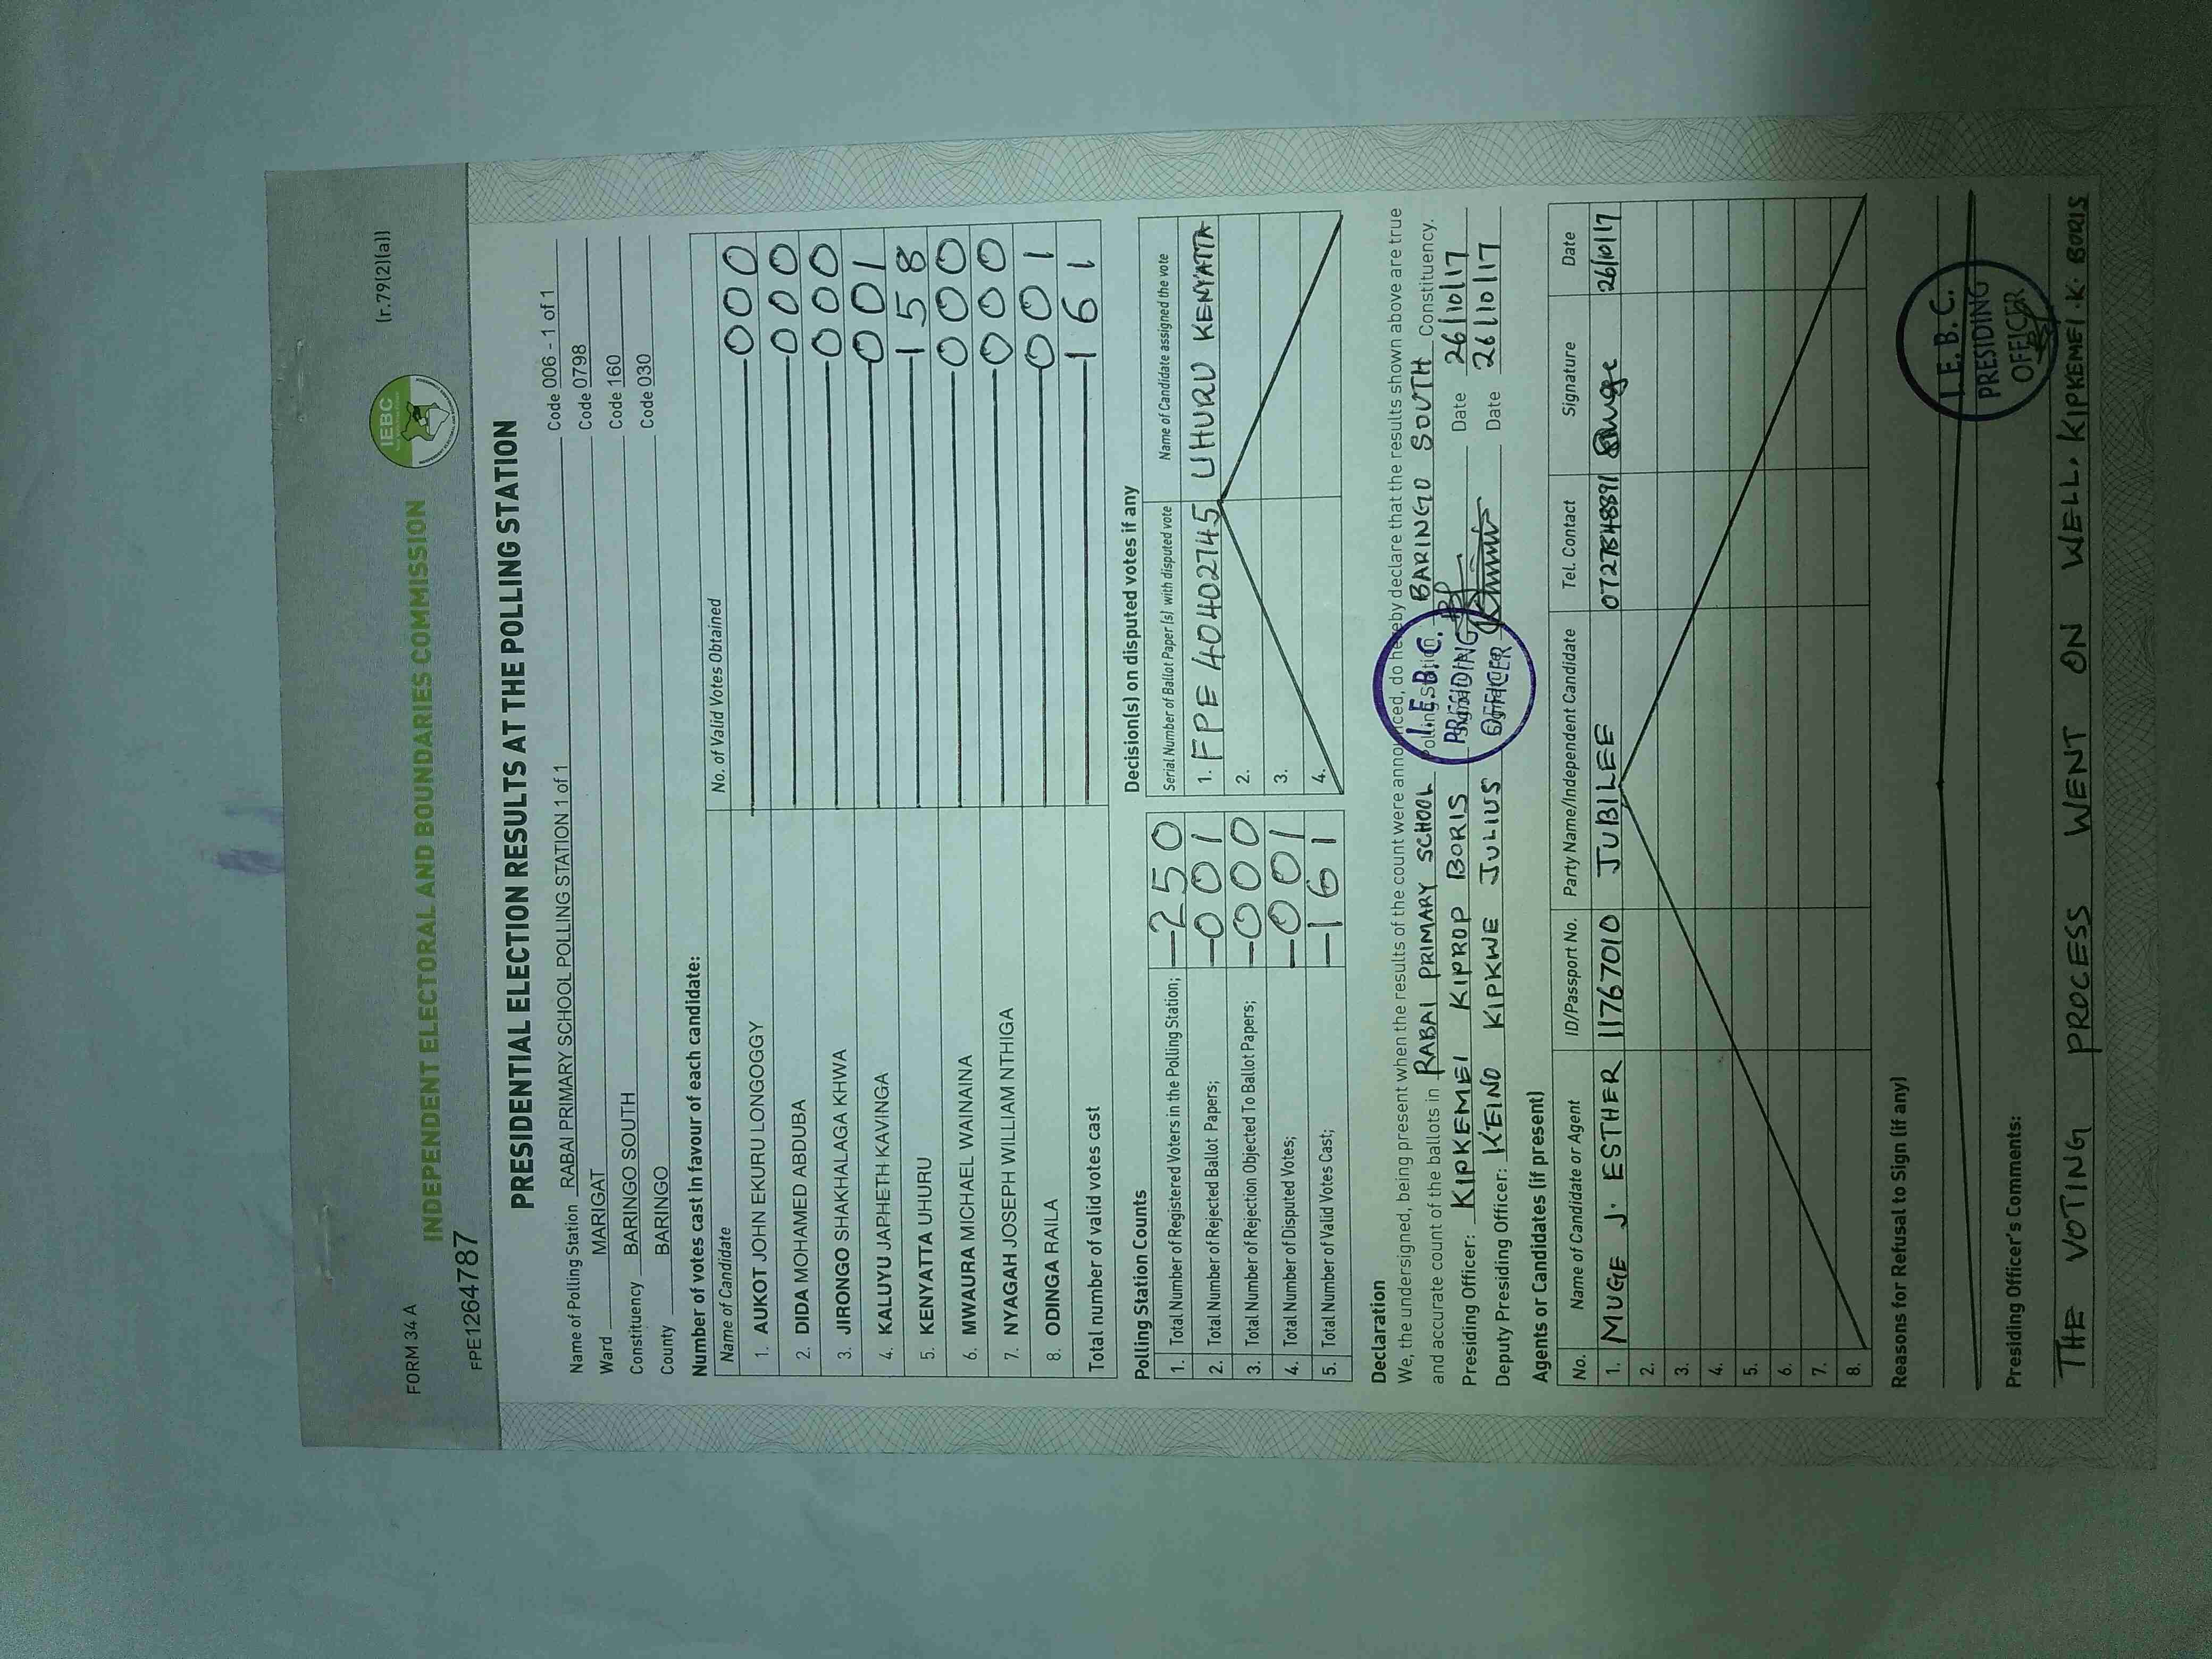 FORM 34 A
(r.79(2)(a))
INDEPENDENT ELECTORAL AND BOUNDARIES COMMISSION
IEBC
FPE1264787
PRESIDENTIAL ELECTION RESULTS AT THE POLLING STATION
Name of Polling Station RABAI PRIMARY SCHOOL POLLING STATION 1 of 1 Code 006 - 1 of 1
Ward MARIGAT Code 0798
Constituency BARINGO SOUTH Code 160
County BARINGO Code 030
Number of votes cast in favour of each candidate:
Name of Candidate No. of Valid Votes Obtained
1. AUKOT JOHN EKURU LONGOGGY 000
2. DIDA MOHAMED ABDUBA 000
3. JIRONGO SHAKHALAGA KHWA 000
4. KALUYU JAPHETH KAVINGA 001
5. KENYATTA UHURU 158
6. MWAURA MICHAEL WAINAINA 000
7. NYAGAH JOSEPH WILLIAM NTHIGA 000
8. ODINGA RAILA 001
Total number of valid votes cast 161
Polling Station Counts
1. Total Number of Registered Voters in the Polling Station; 250
2. Total Number of Rejected Ballot Papers; 001
3. Total Number of Rejection Objected To Ballot Papers; 000
4. Total Number of Disputed Votes; 001
5. Total Number of Valid Votes Cast; 161
Decision(s) on disputed votes if any
Serial Number of Ballot Paper (s) with disputed vote Name of Candidate assigned the vote
1. FPE 40402745 UHURU KENYATTA
2.
3.
4.
Declaration
We, the undersigned, being present when the results of the count were announced, do hereby declare that the results shown above are true
and accurate count of the ballots in RABAI PRIMARY SCHOOL Polling station BARINGO SOUTH Constituency.
Presiding Officer: KIPKEMEI KIPROP BORIS Date 26/10/17
Deputy Presiding Officer: KEINO KIPKWE JULIUS Date 26/10/17
I.E.B.C.
PRESIDING
OFFICER
Agents or Candidates (if present)
No. Name of Candidate or Agent ID/Passport No. Party Name/Independent Candidate Tel. Contact Signature Date
1. MUGE J. ESTHER 11767010 JUBILEE Muge 26/10/17
2.
3.
4.
5.
6.
7.
8.
Reasons for Refusal to Sign (if any)
I.E.B.C.
PRESIDING
OFFICER
Presiding Officer's Comments:
THE VOTING PROCESS WENT ON WELL. KIPKEMEI.K. BORIS